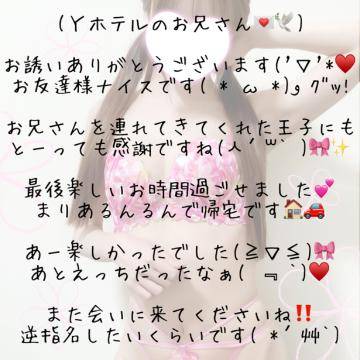 (Yホテルのお兄さん💌🕊️)
お誘いありがとうございます('▽'*♥️
お友達様ナイスです( * ω *)و グッ!
お兄さんを連れてきてくれた王子にも
とーっても感謝ですね(人´꒳` )🎀✨
最後楽しいお時間過ごせました💕
まりあるんるんで帰宅です🏠🚗
あー楽しかったでした(≧▽≦)🎀
あとえっちだったなぁ( ﹃ `)♥️
また会いに来てくださいね‼️
逆指名したいくらいです( *´艸`)